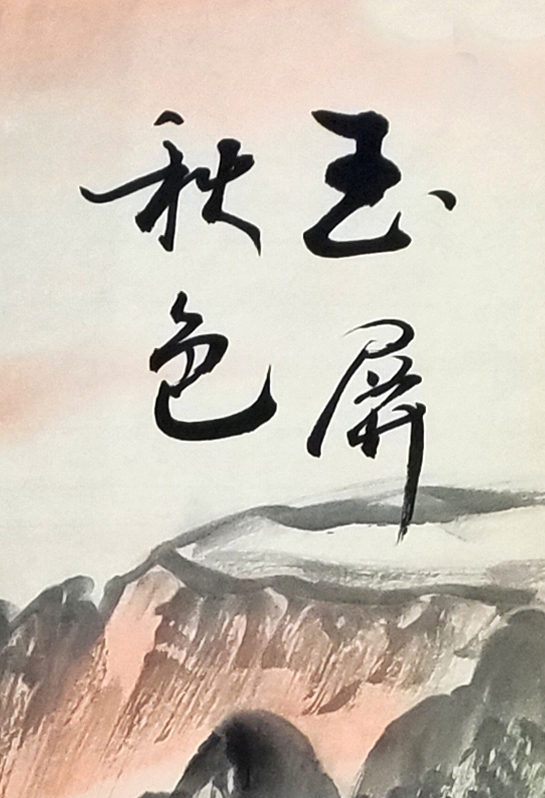 玉屏
秋色